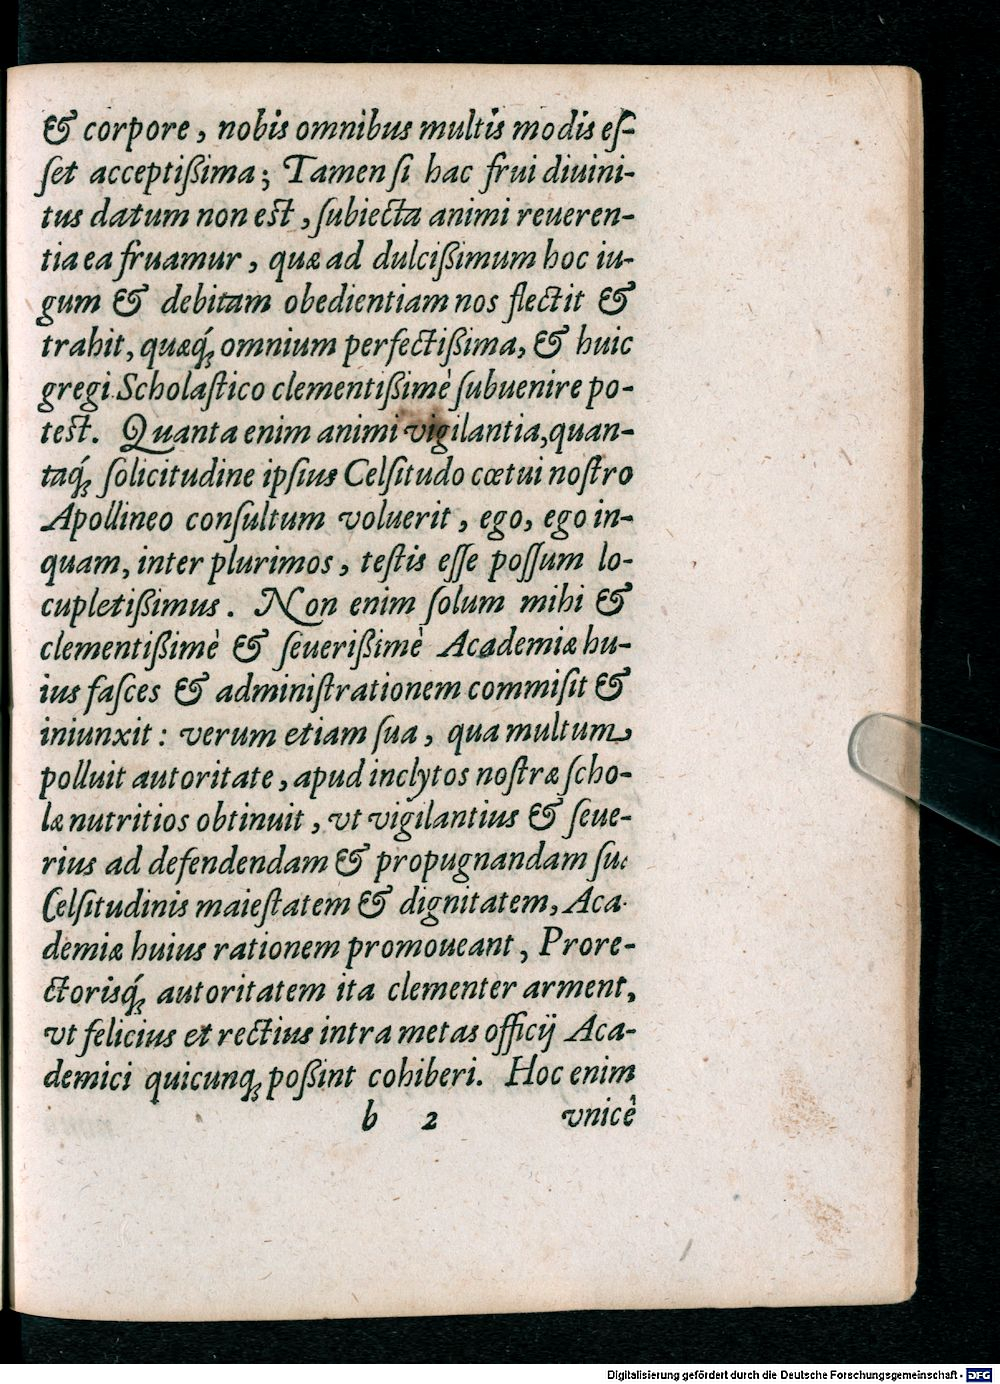 & corpore, nobis omnibus multis modis eſ-
ſet acceptißima; Tamen ſi hac frui diuini-
tus datum non est, ſubiecta animi reueren-
tia ea fruamur, quæ ad dulcißimum hoc iu-
gum & debitam obedientiam nos flectit &
trahit, quæq́ꝫ omnium perfectißima, & huic
gregi Scholaſtico clementißimè ſubuenire po-
test. Quanta enim animi vigilantia, quan-
taq́ꝫ ſolicitudine ipſius Celſitudo cœtui noſtro
Apollineo conſultum voluerit, ego, ego in-
quam, inter plurimos, teſtis eſſe poſſum lo-
cupletißimus. Non enim ſolum mihi &
clementißimè & ſeuerißimè Academiæ hu-
ius faſces & adminiſtrationem commiſit &
iniunxit: verum etiam ſua, qua multum
polluit autoritate, apud inclytos noſtræ ſcho-
læ nutritios obtinuit, vt vigilantius & ſeue-
rius ad defendendam & propugnandam ſuæ
Celſitudinis maieſtatem & dignitatem, Aca-
demiæ huius rationem promoueant, Prore-
ctorisq́ꝫ autoritatem ita clementer arment,
vt felicius et rectius intra metas officij Aca-
demici quicunqꝫ poßint cohiberi. Hoc enim
b 2 vnicè
Digitalisierung gefördert durch die Deutsche Forschungsgemeinschaft - DFG